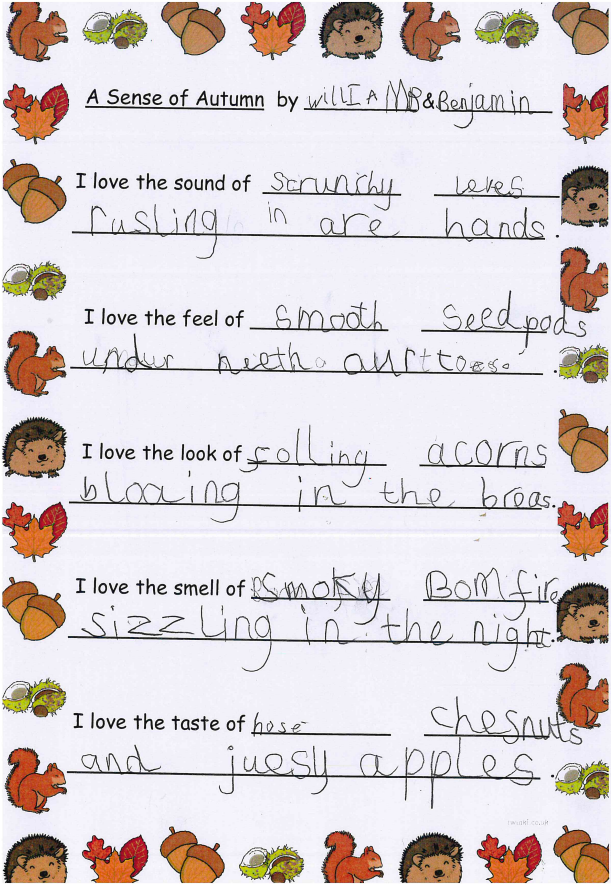 A Sense of Autumn by willIAM & Benjamin
I love the sound of scrunchy leves
rusling in are hands.
I love the feel of smooth seedpods
undur neeth aur toes.
I love the look of folling acorns
bloaing in the
I love the smell of smoky Bomfire
sizzling in the night.
I love the taste of chesnuts
and juesy apples.